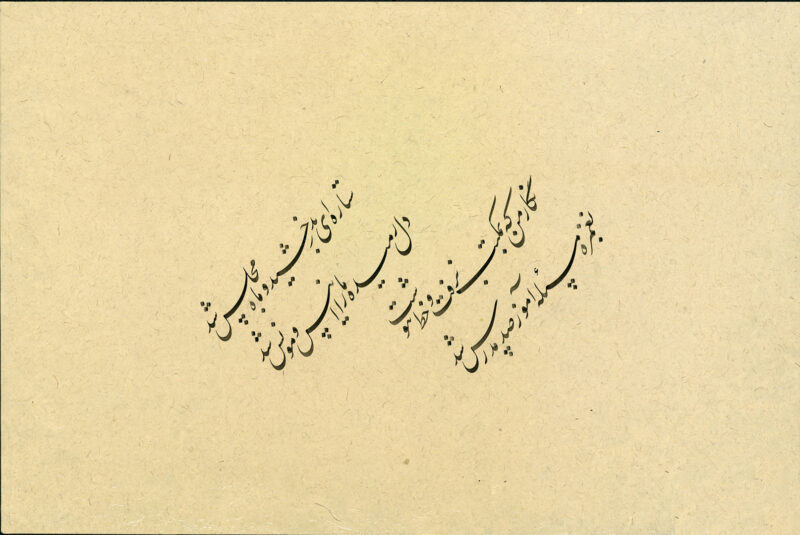 ستاره‌ای بدرخشید و ماه مجلس شد
دل رمیده ما را انیس و مونس شد
نگار من که بمکتب نرفت و خط ننوشت
بغمزه مسئله آموز صد مدرس شد